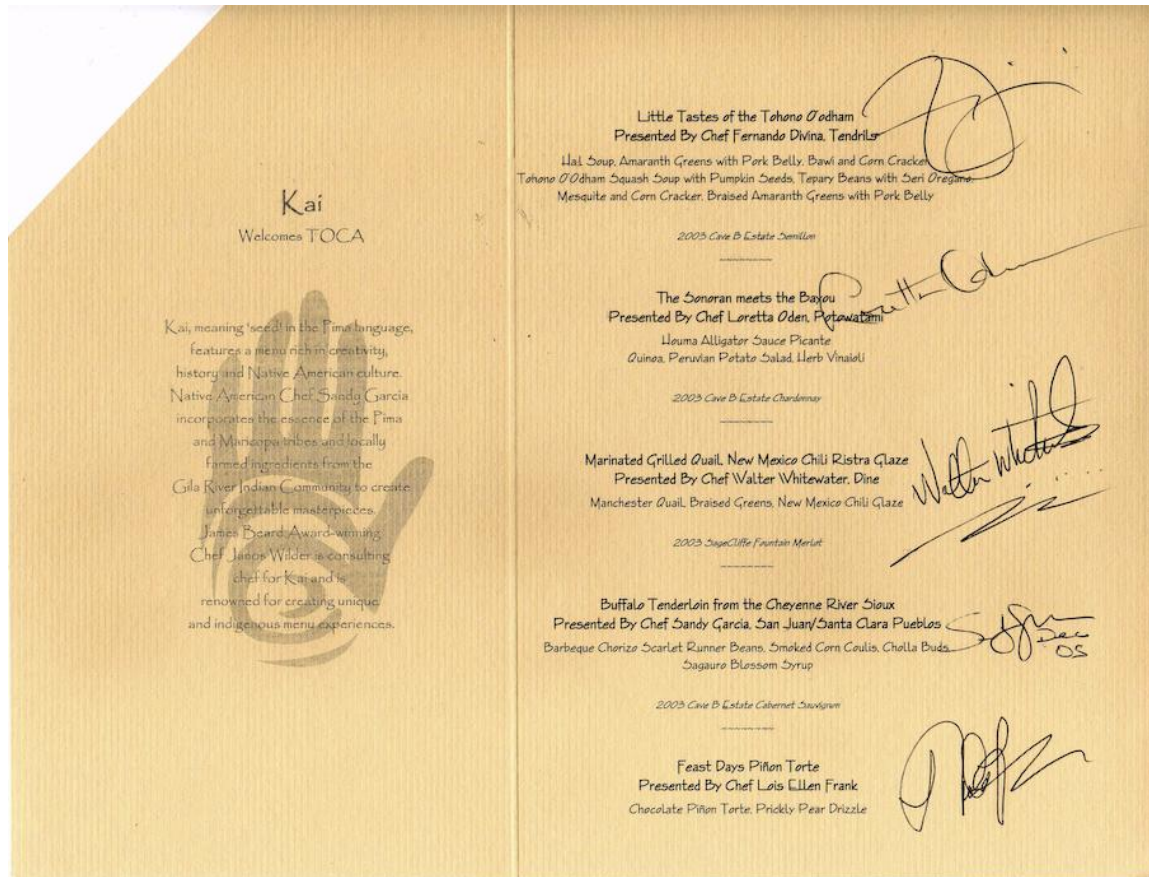 Kai
Welcomes TOCA
Kai, meaning 'seed' in the Pima language,
features a menu rich in creativity,
history and Native American culture.
Native American Chef Sandy Garcia
incorporates the essence of the Pima
and Maricopa tribes and locally
farmed ingredients from the
Gila River Indian Community to create
unforgettable masterpieces.
James Beard Award-winning
Chef Janos Wilder is consulting
chef for Kai and is
renowned for creating unique
and indigenous menu experiences.
Little Tastes of the Tohono O'odham
Presented By Chef Fernando Divina, Tendrils
Hal Soup, Amaranth Greens with Pork Belly, Bawi and Corn Cracker
Tohono O'Odham Squash Soup with Pumpkin Seeds, Tepary Beans with Seri Oregano,
Mesquite and Corn Cracker, Braised Amaranth Greens with Pork Belly
2003 Cave B Estate Semillon
The Sonoran meets the Bayou
Presented By Chef Loretta Oden, Potowatami
Loretta Oden
Houma Alligator Sauce Picante
Quinoa, Peruvian Potato Salad, Herb Vinaioli
2003 Cave B Estate Chardonnay
Marinated Grilled Quail, New Mexico Chili Ristra Glaze
Presented By Chef Walter Whitewater, Dine
Walter Whitewater
Manchester Quail, Braised Greens, New Mexico Chili Glaze
2003 SageCliffe Fountain Merlot
Buffalo Tenderloin from the Cheyenne River Sioux
Presented By Chef Sandy Garcia, San Juan/Santa Clara Pueblos
Barbeque Chorizo Scarlet Runner Beans, Smoked Corn Coulis, Cholla Buds,
Sagauro Blossom Syrup
Dec
05
2003 Cave B Estate Cabernet Sauvignon
Feast Days Piñon Torte
Presented By Chef Lois Ellen Frank
Chocolate Piñon Torte, Prickly Pear Drizzle